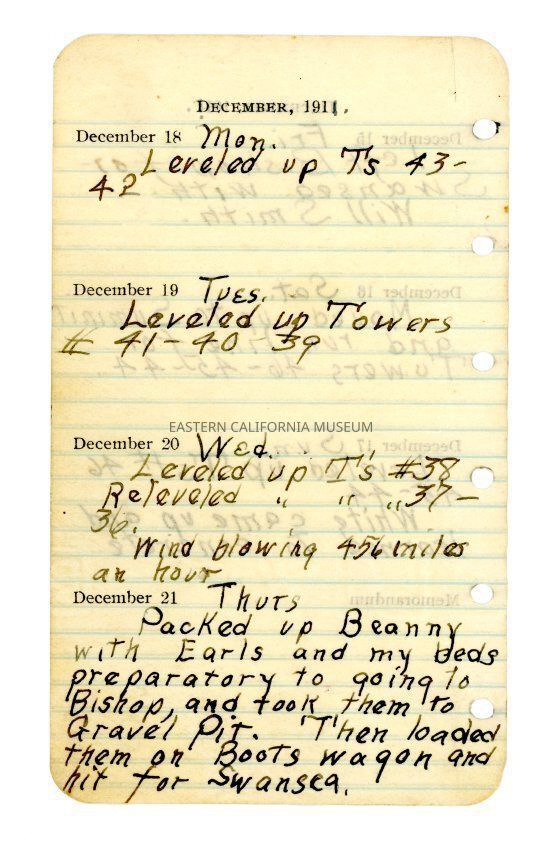 DECEMBER, 1911.
December 18 Mon.
Leveled up T's 43-
42
December 19 Tues.
Leveled up Towers
# 41-40 39
EASTERN CALIFORNIA MUSEUM
December 20 Wed.
Leveled up T's #38
Releveled " " " 37-
36.
Wind blowing 456 miles
an hour
December 21 Thurs
Packed up Beanny
with Earls and my beds
preparatory to going to
Bishop, and took them to
Gravel Pit. Then loaded
them on Boots wagon and
hit for Swansea.